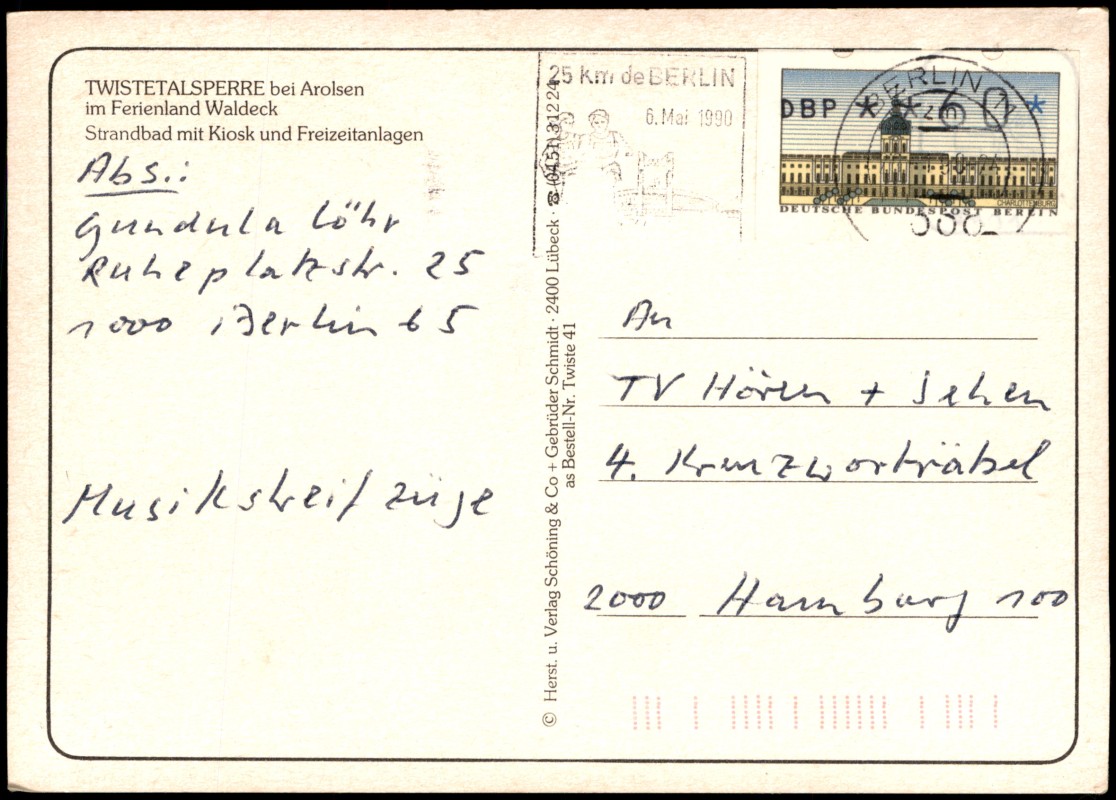 TWISTETALSPERRE bei Arolsen
im Ferienland Waldeck
Strandbad mit Kiosk und Freizeitanlagen
Abs.:
Gundula Löhr
Ruheplatzstr. 25
1000 Berlin 65
Musikstreifzüge
© Herst. u. Verlag Schöning & Co + Gebrüder Schmidt · 2400 Lübeck · ☎ (0451) 31224
as Bestell-Nr. Twiste 41
25 km de BERLIN
6. Mai 1990
BERLIN
DBP * * 60 *
CHARLOTTENBURG
DEUTSCHE BUNDESPOST BERLIN
An
TV Hören + Sehen
4. Kreuzworträtsel
2000 Hamburg 100